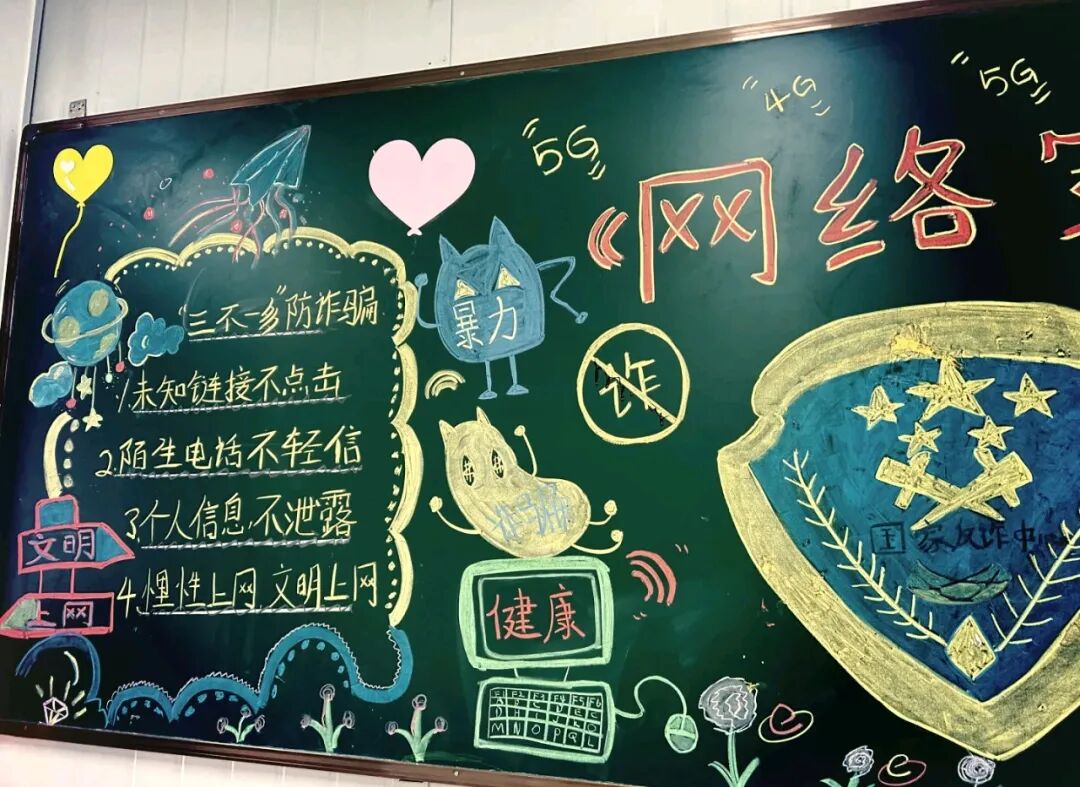 5G
4G
5G
网络
"三不一多"防诈骗
1.未知链接不点击
2.陌生电话不轻信
3个人信息,不泄露
4.性上网,文明上网
文明
上网
暴力
诈
诈骗
健康
F2 F3 F4 F5 F6
M N O P Q L
国家反诈中心